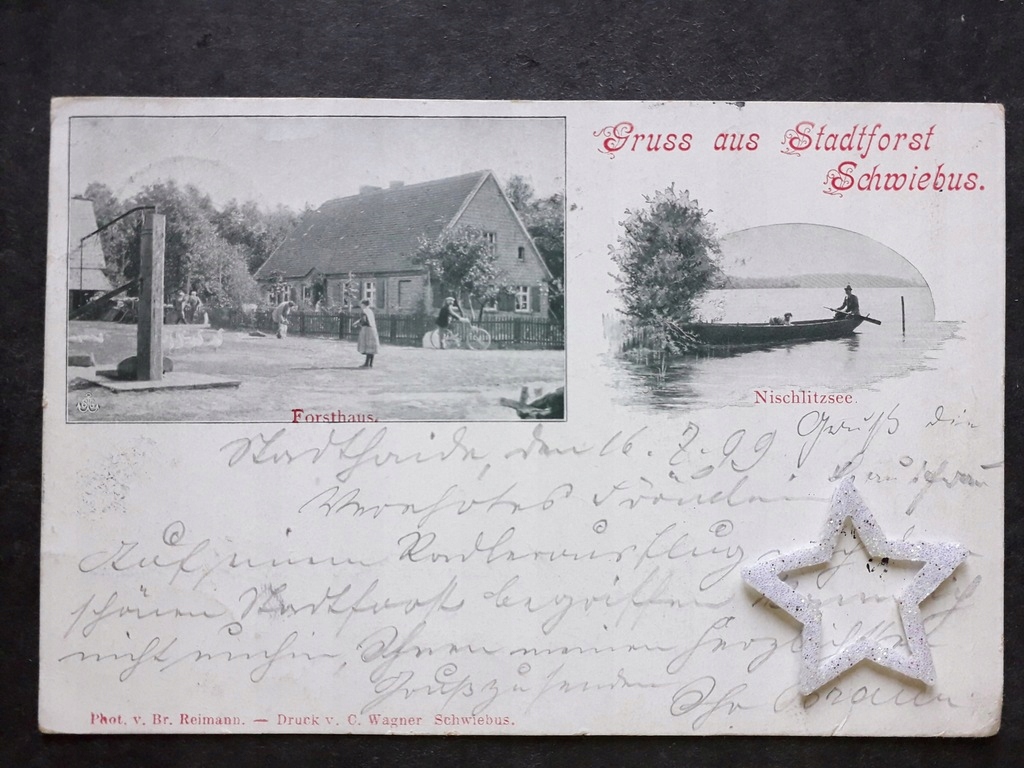 Gruss aus Stadtforst
Schwiebus.
Forsthaus.
Nischlitzsee.
Stadthaide, den 16. 7. 99
Gruß die
Verehrtes Fräulein
Auf einem Radlerausflug
schönen Stadtforst begriffen
nicht umhin, Ihnen meinen herzlichsten
Gruß zu senden
Ihr
Phot. v. Br. Reimann. — Druck v. C. Wagner Schwiebus.